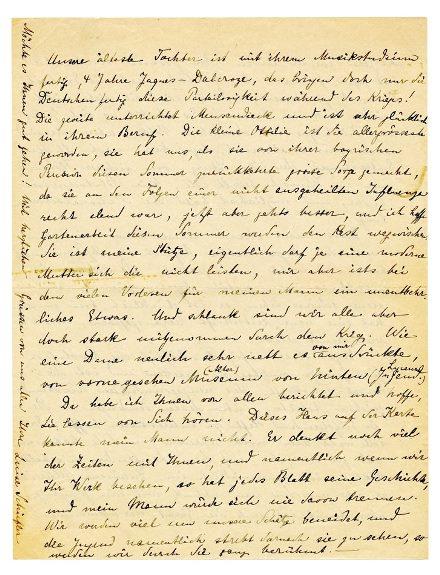 Unsere älteste Tochter ist mit ihrem Musikstudium
fertig, 4 Jahre Jaques-Dalcroze, das bringen doch nur die
Deutschen fertig diese Parteilosigkeit während des Kriegs!
Die zweite unterrichtet Mensendieck und ist sehr glücklich
in ihrem Beruf. Die kleine Ottilie ist die allergrösste
geworden, sie hat uns, als sie von ihrer bayrischen
Pension diesen Sommer zurückkehrte grosse Sorge gemacht,
da sie an den Folgen einer nicht ausgeheilten Influenza
recht elend war, jetzt aber gehts besser, und ich hoffe
Gartenarbeit diesen Sommer werden den Rest wegwischen.
Sie ist meine Stütze, eigentlich darf je eine moderne
Mutter sich die nicht leisten, mir aber ists bei
den vielen Vorlesen für meinen Mann ein unentbehr-
liches Etwas. Und schlank sind wir alle aber
doch stark mitgenommen durch den Krieg. Wie
eine Dame neulich sehr nett es von mir ausdrückte,
von vorne gesehen Museum von hinten Lyzeum
Da habe ich Ihnen von allen berichtet und hoffe,
Sie lassen von Sich hören. Dieses Haus auf der Karte
kannte mein Mann nicht. Er denkt noch viel
der Zeiten mit Ihnen, und namentlich wenn wir
Ihr Werk besehen, so hat jedes Blatt seine Geschichte,
und mein Mann würde sich nie davon trennen.
Wir werden viel um unsere Schätze beneidet, und
die Jugend namentlich strebt darnach sie zu sehen, so
werden wir durch Sie ganz berühmt.
Möchte es Ihnen gut gehen! Viel herzliche Grüsse von uns allen Ihre Luise Schiefler